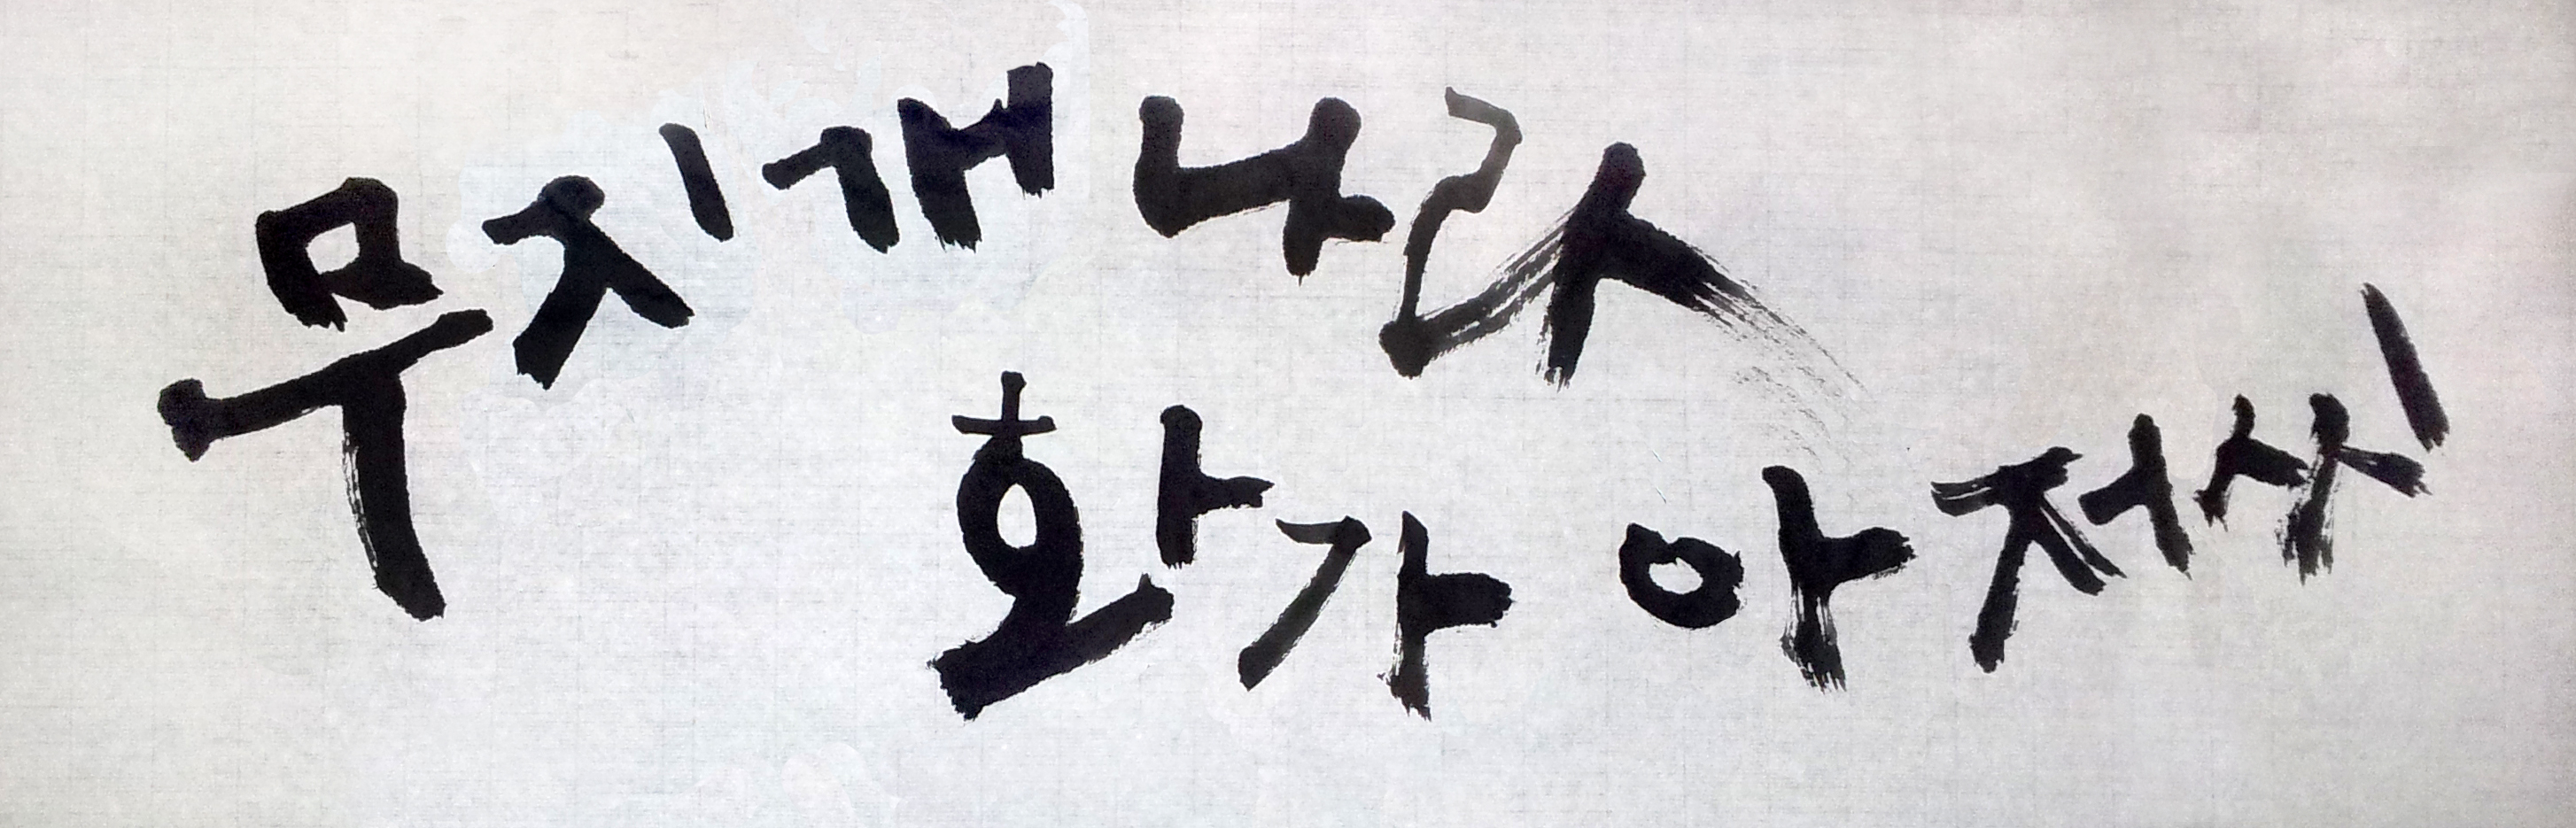 무지개 나라
화가 아저씨